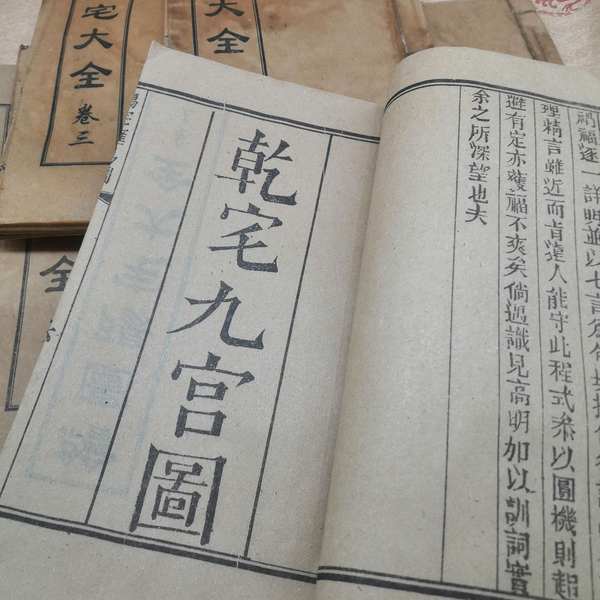 逐一詳註並以七言
理精言雖近而肯遠人能守此程式叅以圓機則起
避有定亦獲福不爽矣倘遇識見高明加以訓詞實
余之所深望也夫
乾宅九宮圖
宅大全
宅大全
卷三
全